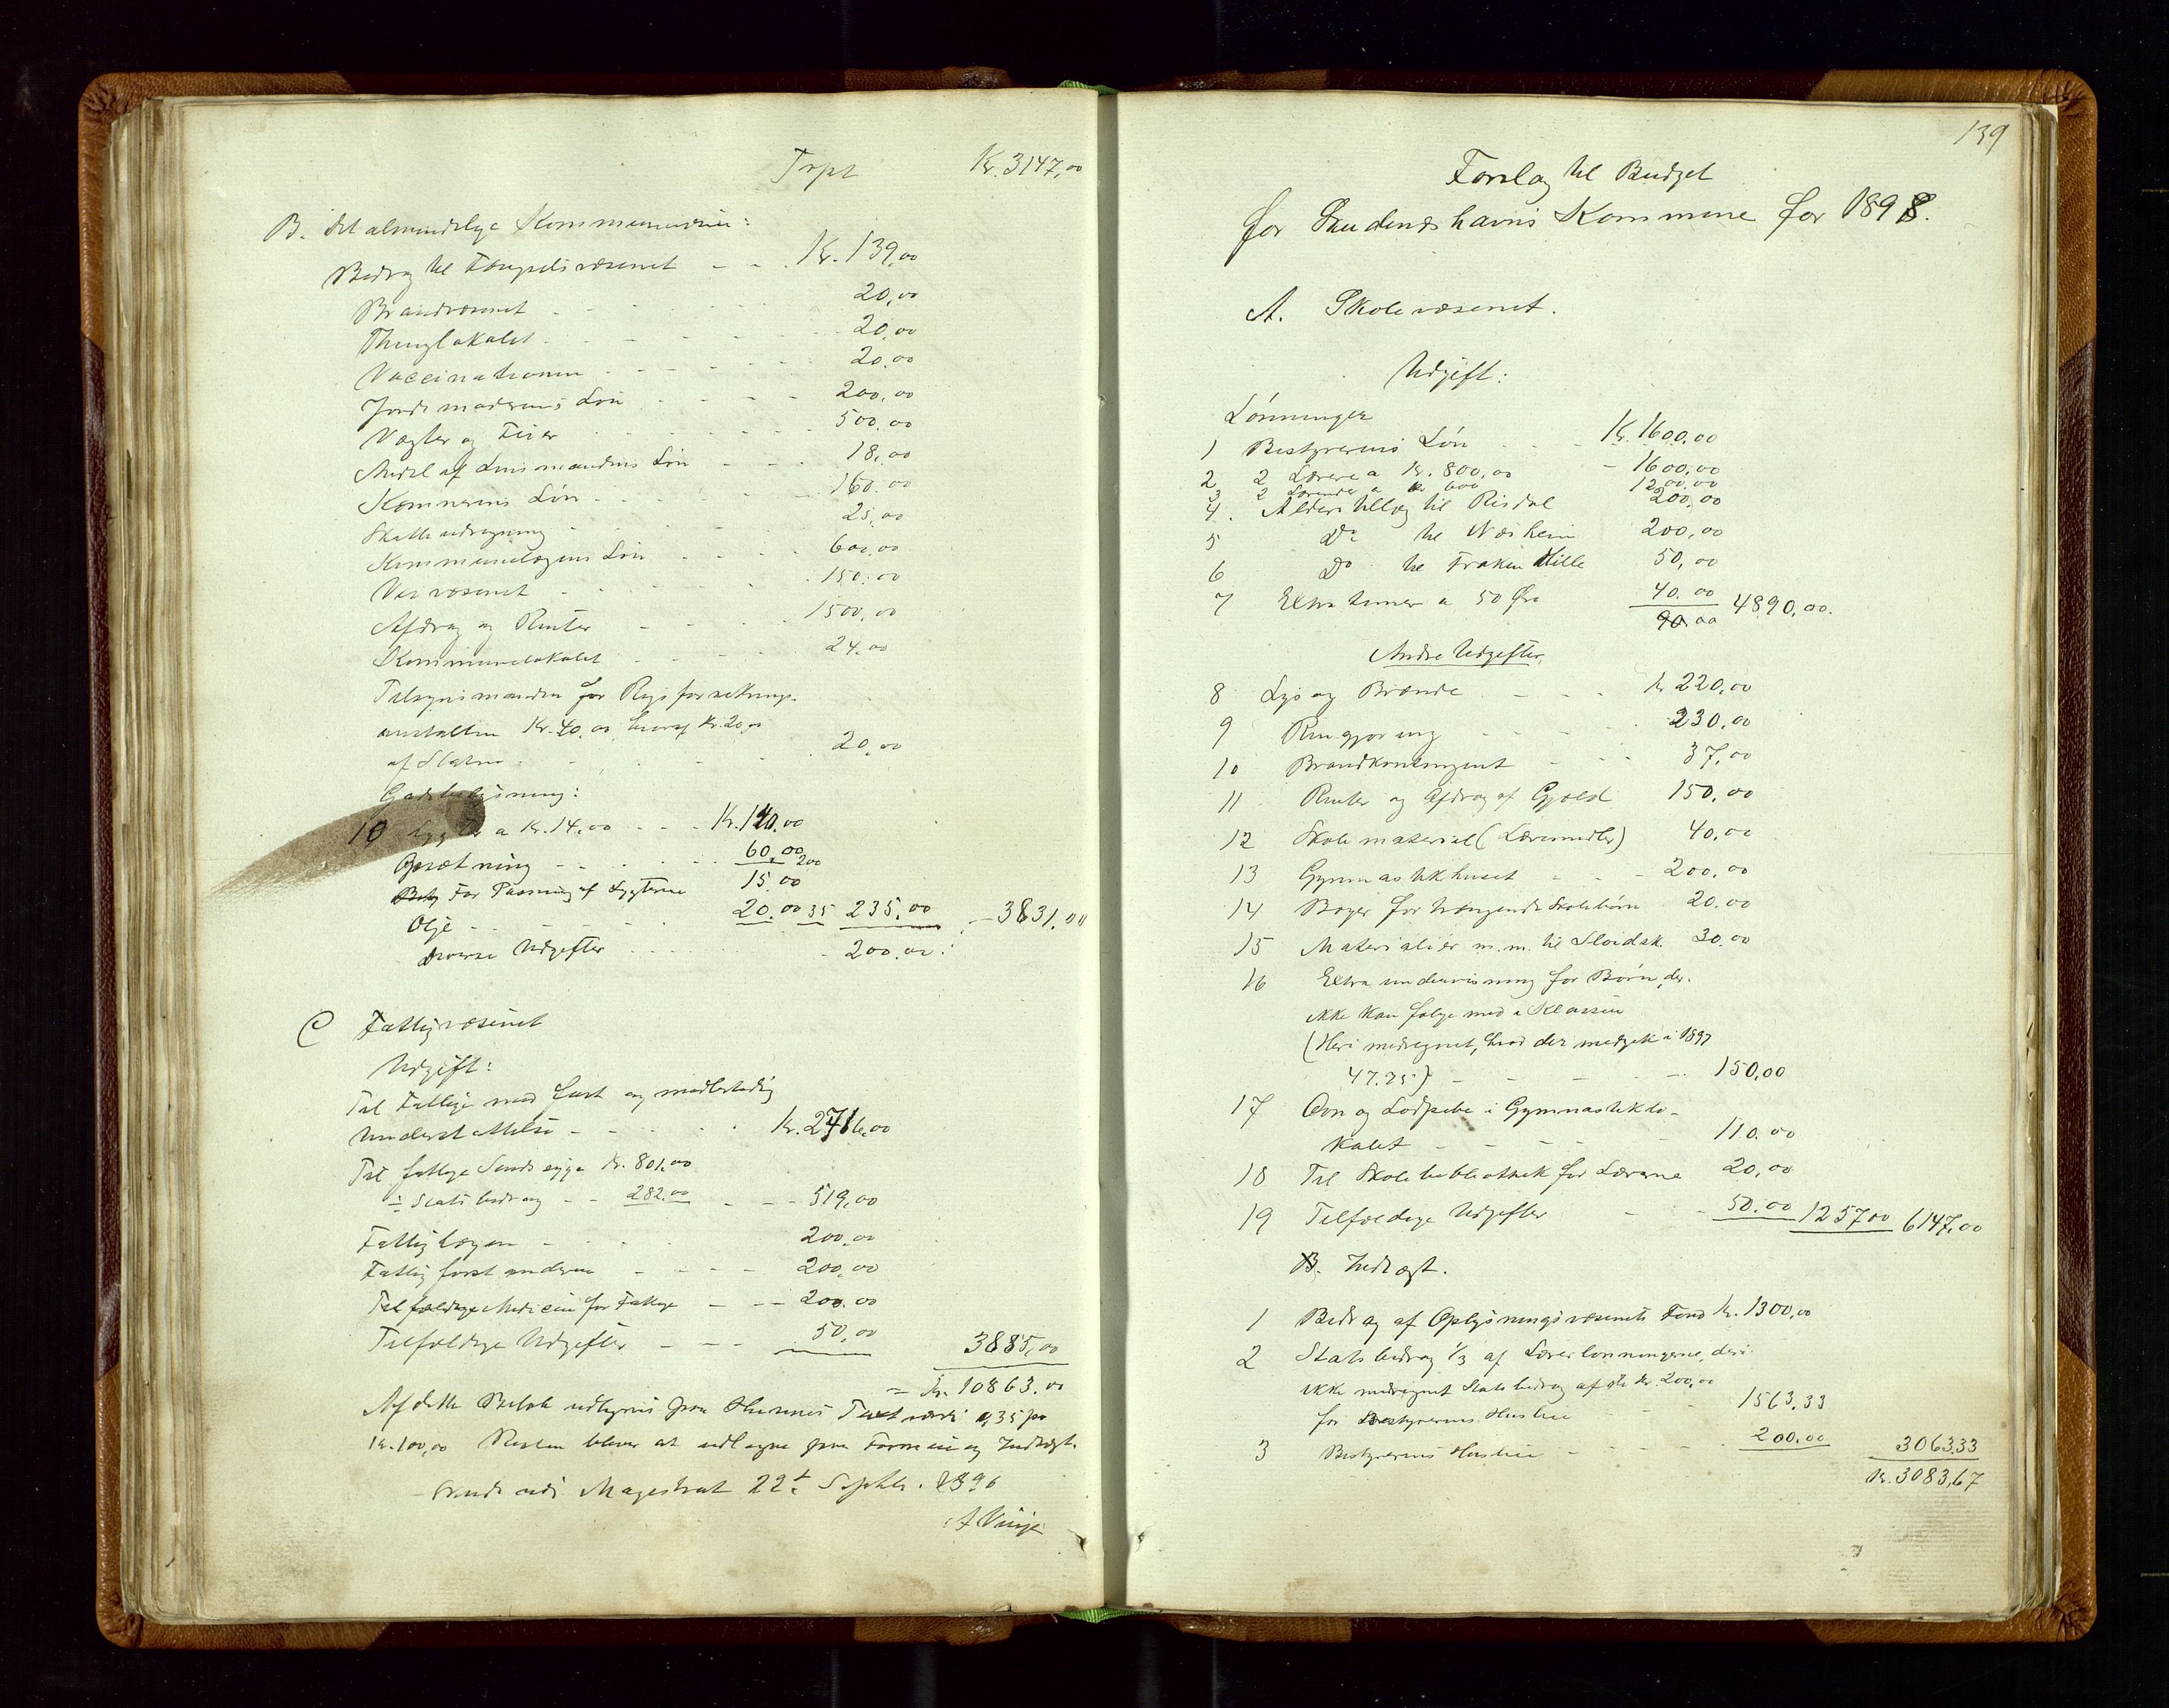 Trpt Kr. 3147,00
B. det almindelige Kommunevæsen:
Bidrag til Fængselsvæsenet - - Kr. 139,00
Brandvæsenet - - 20,00
Thinglokalet - - 20,00
Vaccinationen - - 20,00
Jordemoderens Løn - - 200,00
Vægter og Feier - - 500,00
Andel af Lensmandens Løn - - 18,00
Kemnerens Løn - - 160,00
Skatteudregning 25,00
Kommunelægens Løn - - 600,00
Veivæsenet - - 150,00
Afdrag og Renter - - 1500,00
Kommunelokalet - - 24,00
Tilsynsmanden for Rigsforsikrings-
anstalten Kr. 40,00, hvoraf Kr. 20,00
af Staten - - 20,00
Gadebelysning:
10 Lygter a Kr. 14,00 - - Kr. 140,00
Opsætning - - 60,00 200
For Pasning af Lygterne 15,00
Olje - - 20,00 35 235,00 - 3831,00
Diverse Udgifter - - 200,00
C Fattigvæsenet
Udgift:
Til Fattige med fast og midlertidig
Understøttelse - - Kr. 2716,00
Til fattige Sindssyge Kr. 801,00
÷ Statsbidrag - - 282,00 - - 519,00
Fattiglægen - - 200,00
Fattigforstanderen - - 200,00
Tilfældige Medicin for Fattige - - 200,00
Tilfældige Udgifter - - 50,00 3885,00
= Kr. 10863,00
Af dette Beløb udlignes paa Husenes Taxtværdi 0,35 pr
Kr. 100,00 Resten bliver at udligne paa Formue og Indtægt.
Skudesnæs Magistrat 22de Septbr. 1896
A Vinje
139
Forslag til Budget
for Skudesneshavns Kommune for 1898.
A. Skolevæsenet.
Udgift:
Lønninger
1 Bestyrerens Løn - - Kr. 1600,00
2 2 Lærere a Kr. 800,00 - 1600,00
3 2 Lærerinder a Kr 600 1200,00
4. Alderstillæg til Risdal 200,00
5 Do til Næsheim 200,00
6 Do til Frøken Hille 50,00
7 Extra timer a 50 Øre 40,00 4890,00.
90,00
Andre Udgifter
8 Lys og Brænde - - Kr 220,00
9 Rengjøring - - 230,00
10 Brandkontingent - - 37,00
11 Renter og Afdrag af Gjæld 150,00
12 Skolemateriel (Læremidler) 40,00
13 Gymnastikhuset - - 200,00
14 Bøger for trængende Skolebørn 20,00
15 Materialier m.m. til Sløidsk. 30,00
16 Extra undervisning for Børn, der
ikke kan følge med i Klassen
(Heri medregnet, hvad der medgik i 1897
47.25) - - 150,00
17 Ovn og Lodpibe i Gymnastiklo-
kalet - - 110,00
18 Til Skolebibliothek for Lærerne 20,00
19 Tilfældige Udgifter - - 50,00 1257 00 6147,00
B. Indtægt.
1 Bidrag af Oplysningsvæsenets Fond Kr. 1300,00
2 Statsbidrag 1/3 af Lærerlønningerne, deri
ikke medregnet Statsbidrag af de Kr. 200,00
for Bestyrerens Husleie 1563,33
3 Bestyrerens Husleie - - 200,00 3063,33
Kr. 3083,67